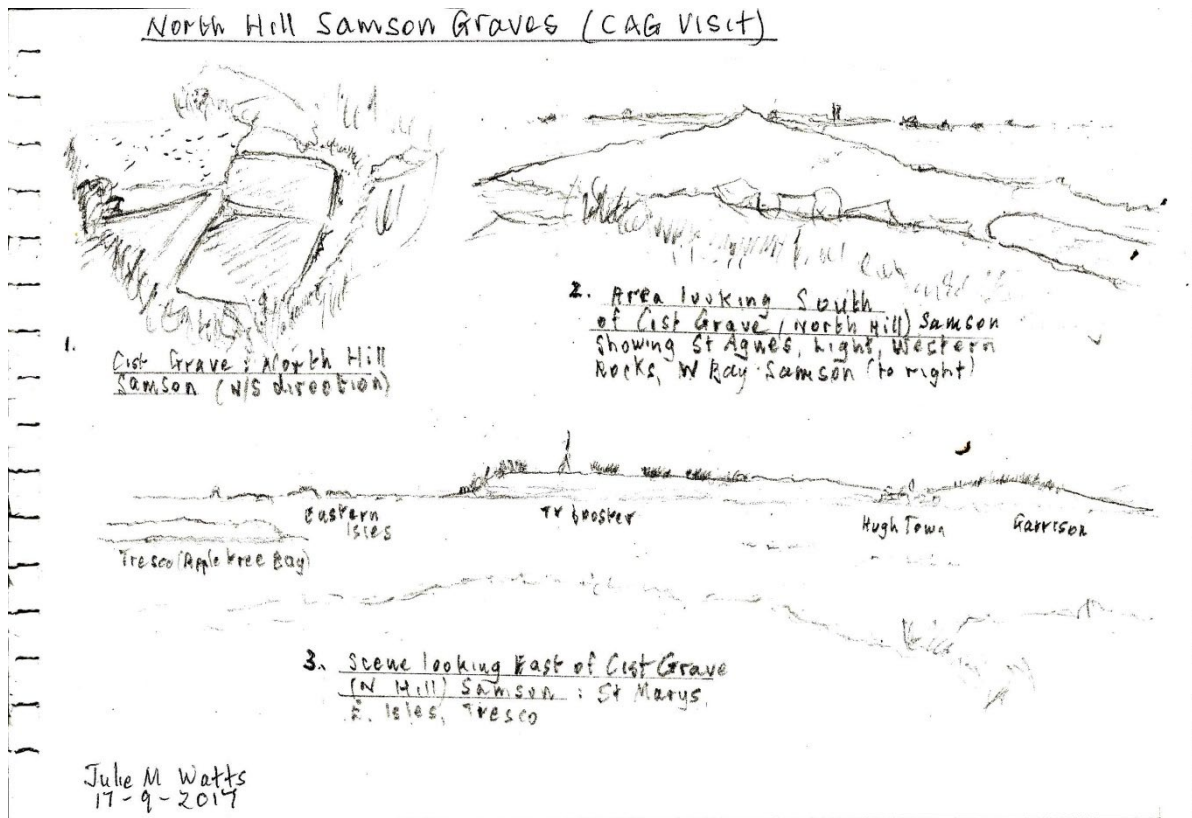 North Hill Samson Graves (CAG Visit)
1.
Cist Grave: North Hill
Samson (N/S direction)
2. Area looking South
of Cist Grave (North Hill) Samson
Showing St Agnes, Light, Western
Rocks, W Bay Samson (to right)
Eastern
Isles
TV booster
Hugh Town
Garrison
Tresco (Appletree Bay)
3. Scene looking East of Cist Grave
(N Hill) Samson : St Marys,
E. Isles, Tresco
Julie M Watts
17-9-2017